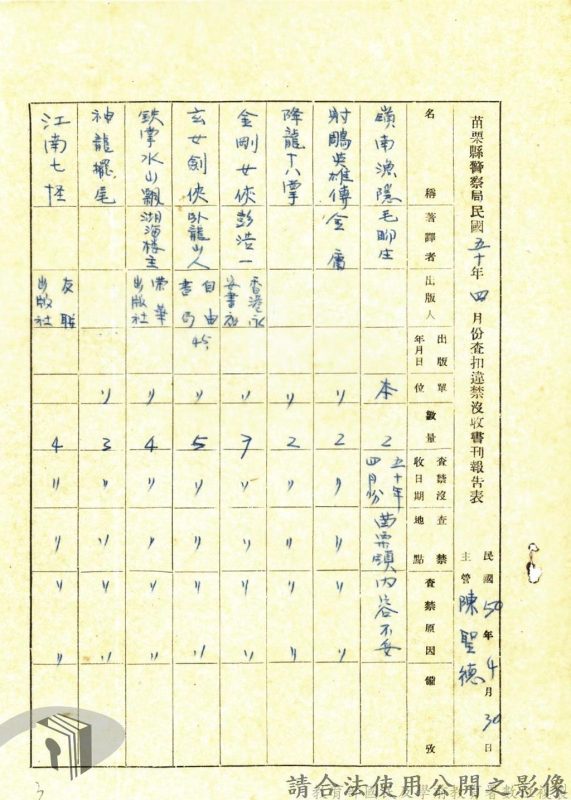 苗栗縣警察局民國五十年四月份查扣違禁沒收書刊報告表
民國50年4月30日
主管 陳聖德
名稱 著譯者 出版人 出版年月日 單位 數量 查禁沒收日期 查禁地點 查禁原因 備攷
嶺南漁隱 毛聊生 本 2 五十年四月份 苗栗頭 內容不妥
射鵰英雄傳 金庸 〃 2 〃 〃 〃 〃
降龍十八掌 〃 2 〃 〃 〃 〃
金剛女俠 彭浩一 香港 〃 7 〃 〃 〃 〃
玄女劍俠 臥龍山人 自由 45 〃 5 〃 〃 〃 〃
鉄掌水山飄 湖海樓主 榮華出版社 〃 4 〃 〃 〃 〃
神龍擺尾 〃 3 〃 〃 〃 〃
江南七怪 友聯出版社 4 〃 〃 〃 〃
3
請合法使用公開之影像